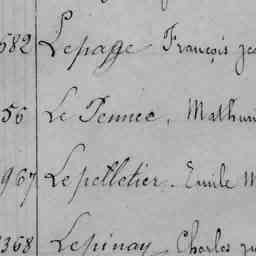 682 Lepage François Je
56 Le Pennec, Mathuri
967 Lepelletier Emile M
368 Lepinay Charles